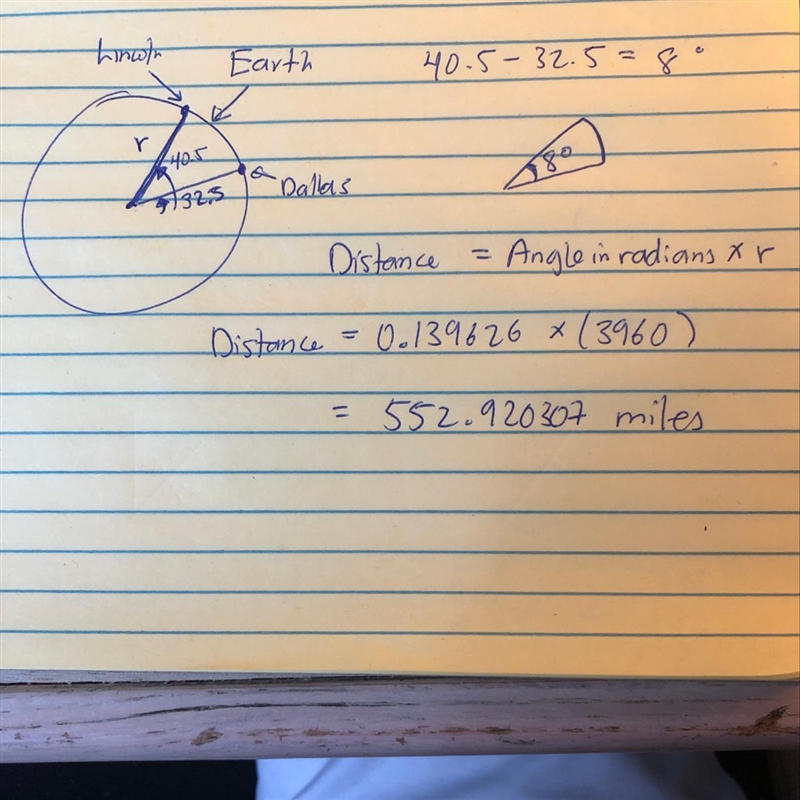 Lincoln
Earth
40.5 - 32.5 = 8°
r
40.5
8°
32.5
Dallas
Distance = Angle in radians × r
Distance = 0.139626 × (3960)
= 552.920307 miles